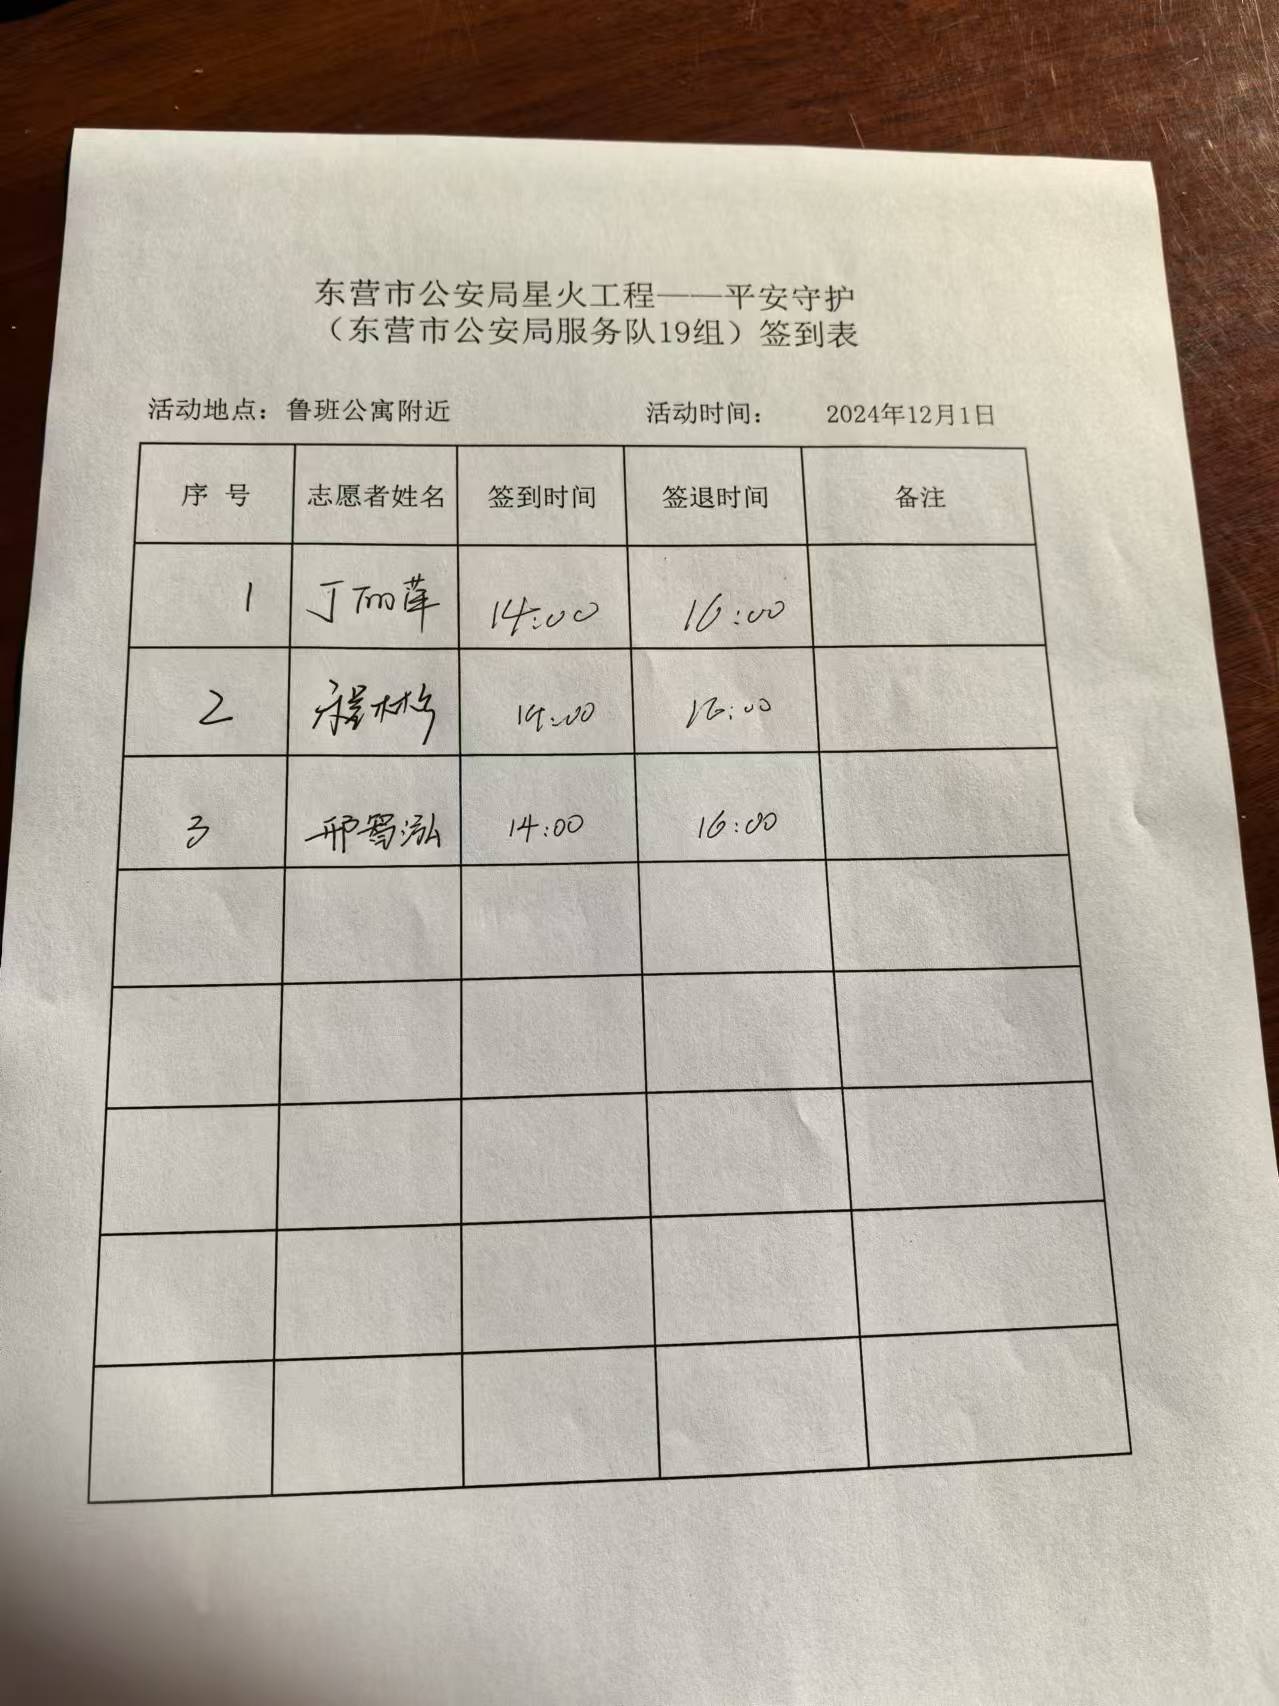 东营市公安局星火工程——平安守护
（东营市公安局服务队19组）签到表
活动地点：鲁班公寓附近 活动时间： 2024年12月1日
序号 志愿者姓名 签到时间 签退时间 备注
1 丁丽萍 14:00 16:00
2 14:00 16:00
3 邢 泓 14:00 16:00